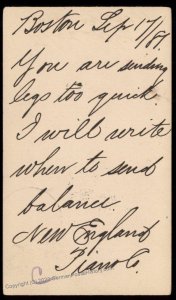 Boston Sep 17/81.
You are sending
legs too quick.
I will write
when to send
balance.
New England
Piano Co.